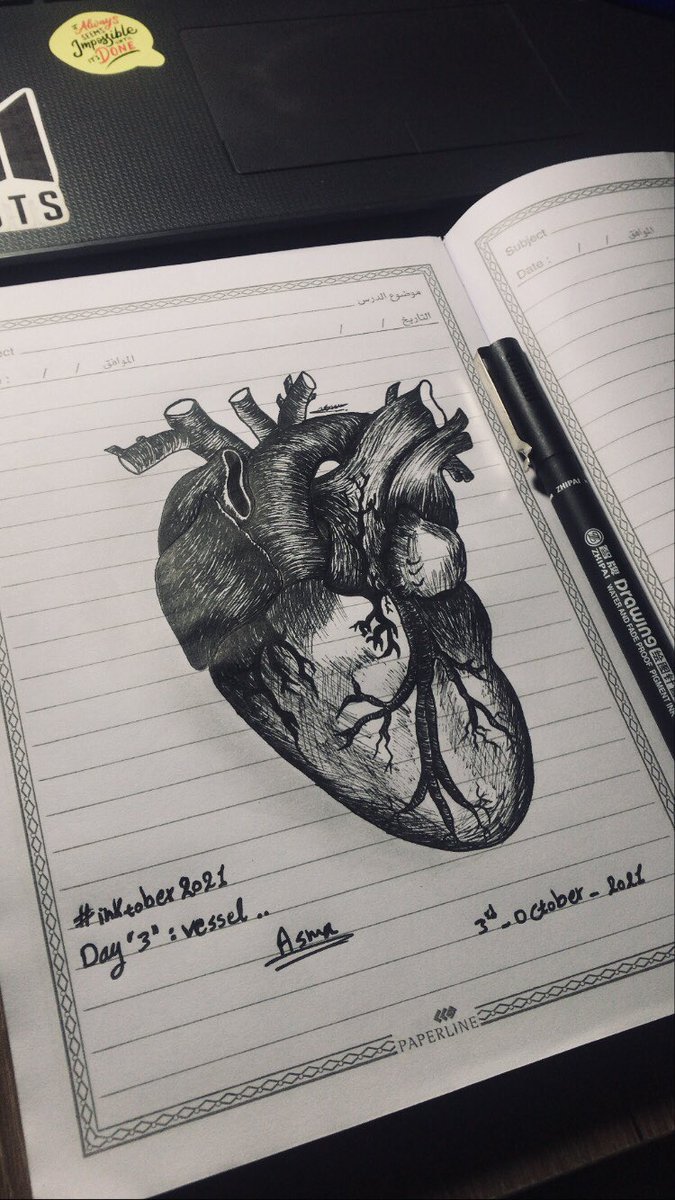 It Always
SEEMS
Impossible
UNTIL
IT'S DONE
BTS
موضوع الدرس
التاريخ / /
الموافق / /
Subject
Date : / / الموافق
ZHIPAI
ZHIPAI Drawing
WATER AND FADE PROOF PIGMENT INK
#inktober2021
Day "3" : vessel ..
Asma
3rd - October - 2021
PAPERLINE